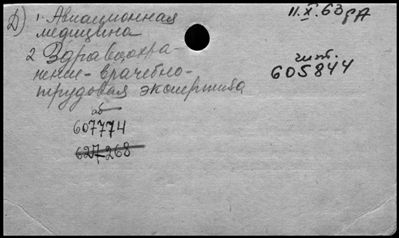 Д) 1. Авиационная
медицина
11.X.63
2 Здравоохра-
нение - врачебно-
трудовая экспертиза
чит.
605844
аб
607774
627268